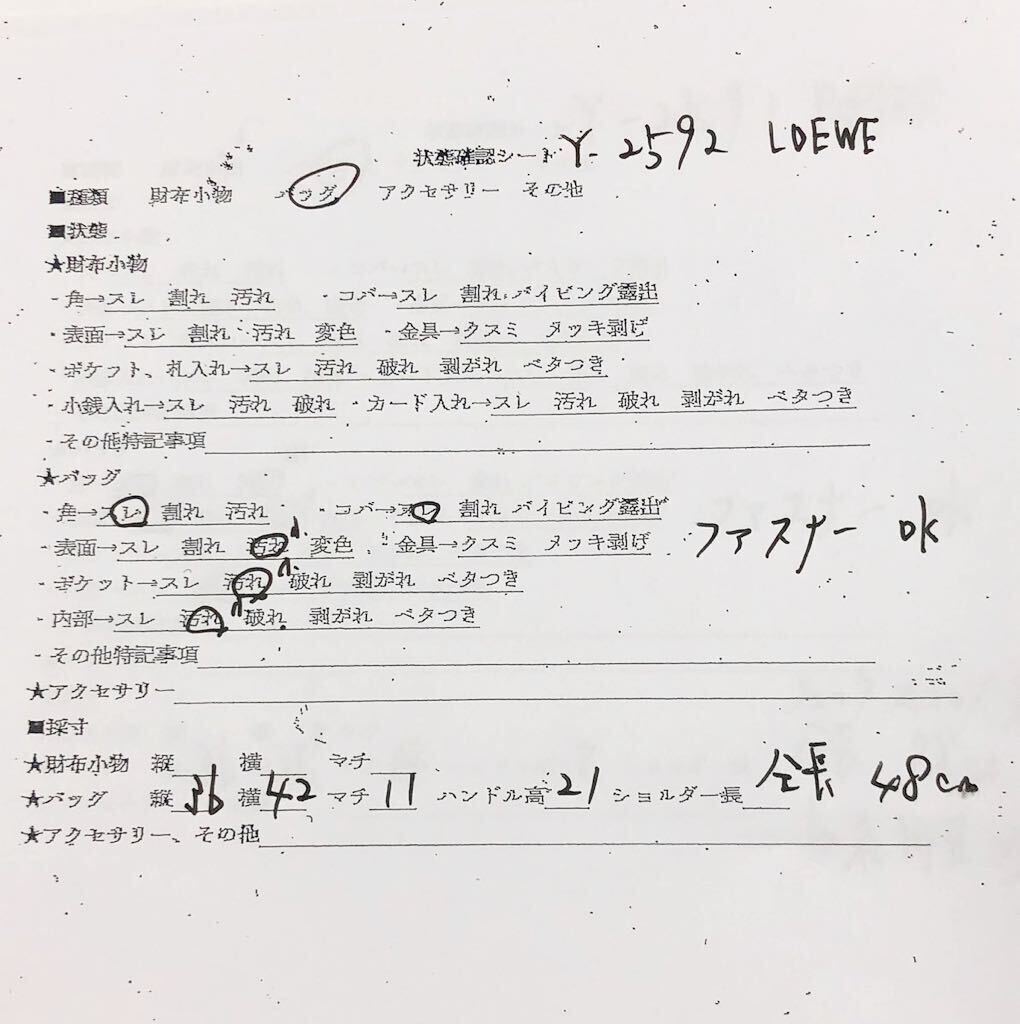 状態確認シート Y-2592 LOEWE
■種類 財布小物 バッグ アクセサリー その他
■状態
★財布小物
・角→スレ 割れ 汚れ ・コバ→スレ 割れ パイピング露出
・表面→スレ 割れ 汚れ 変色 ・金具→クスミ メッキ剥げ
・ポケット、札入れ→スレ 汚れ 破れ 剥がれ ベタつき
・小銭入れ→スレ 汚れ 破れ ・カード入れ→スレ 汚れ 破れ 剥がれ ベタつき
・その他特記事項
★バッグ
・角→スレ 割れ 汚れ ・コバ→スレ 割れ パイピング露出
・表面→スレ 割れ 汚れ 変色 ・金具→クスミ メッキ剥げ
ファスナー OK
・ポケット→スレ 汚れ 破れ 剥がれ ベタつき
・内部→スレ 汚れ 破れ 剥がれ ベタつき
・その他特記事項
★アクセサリー
■採寸
★財布小物 縦 横 マチ
★バッグ 縦36 横42 マチ11 ハンドル高21 ショルダー長 全長 48cm
★アクセサリー、その他